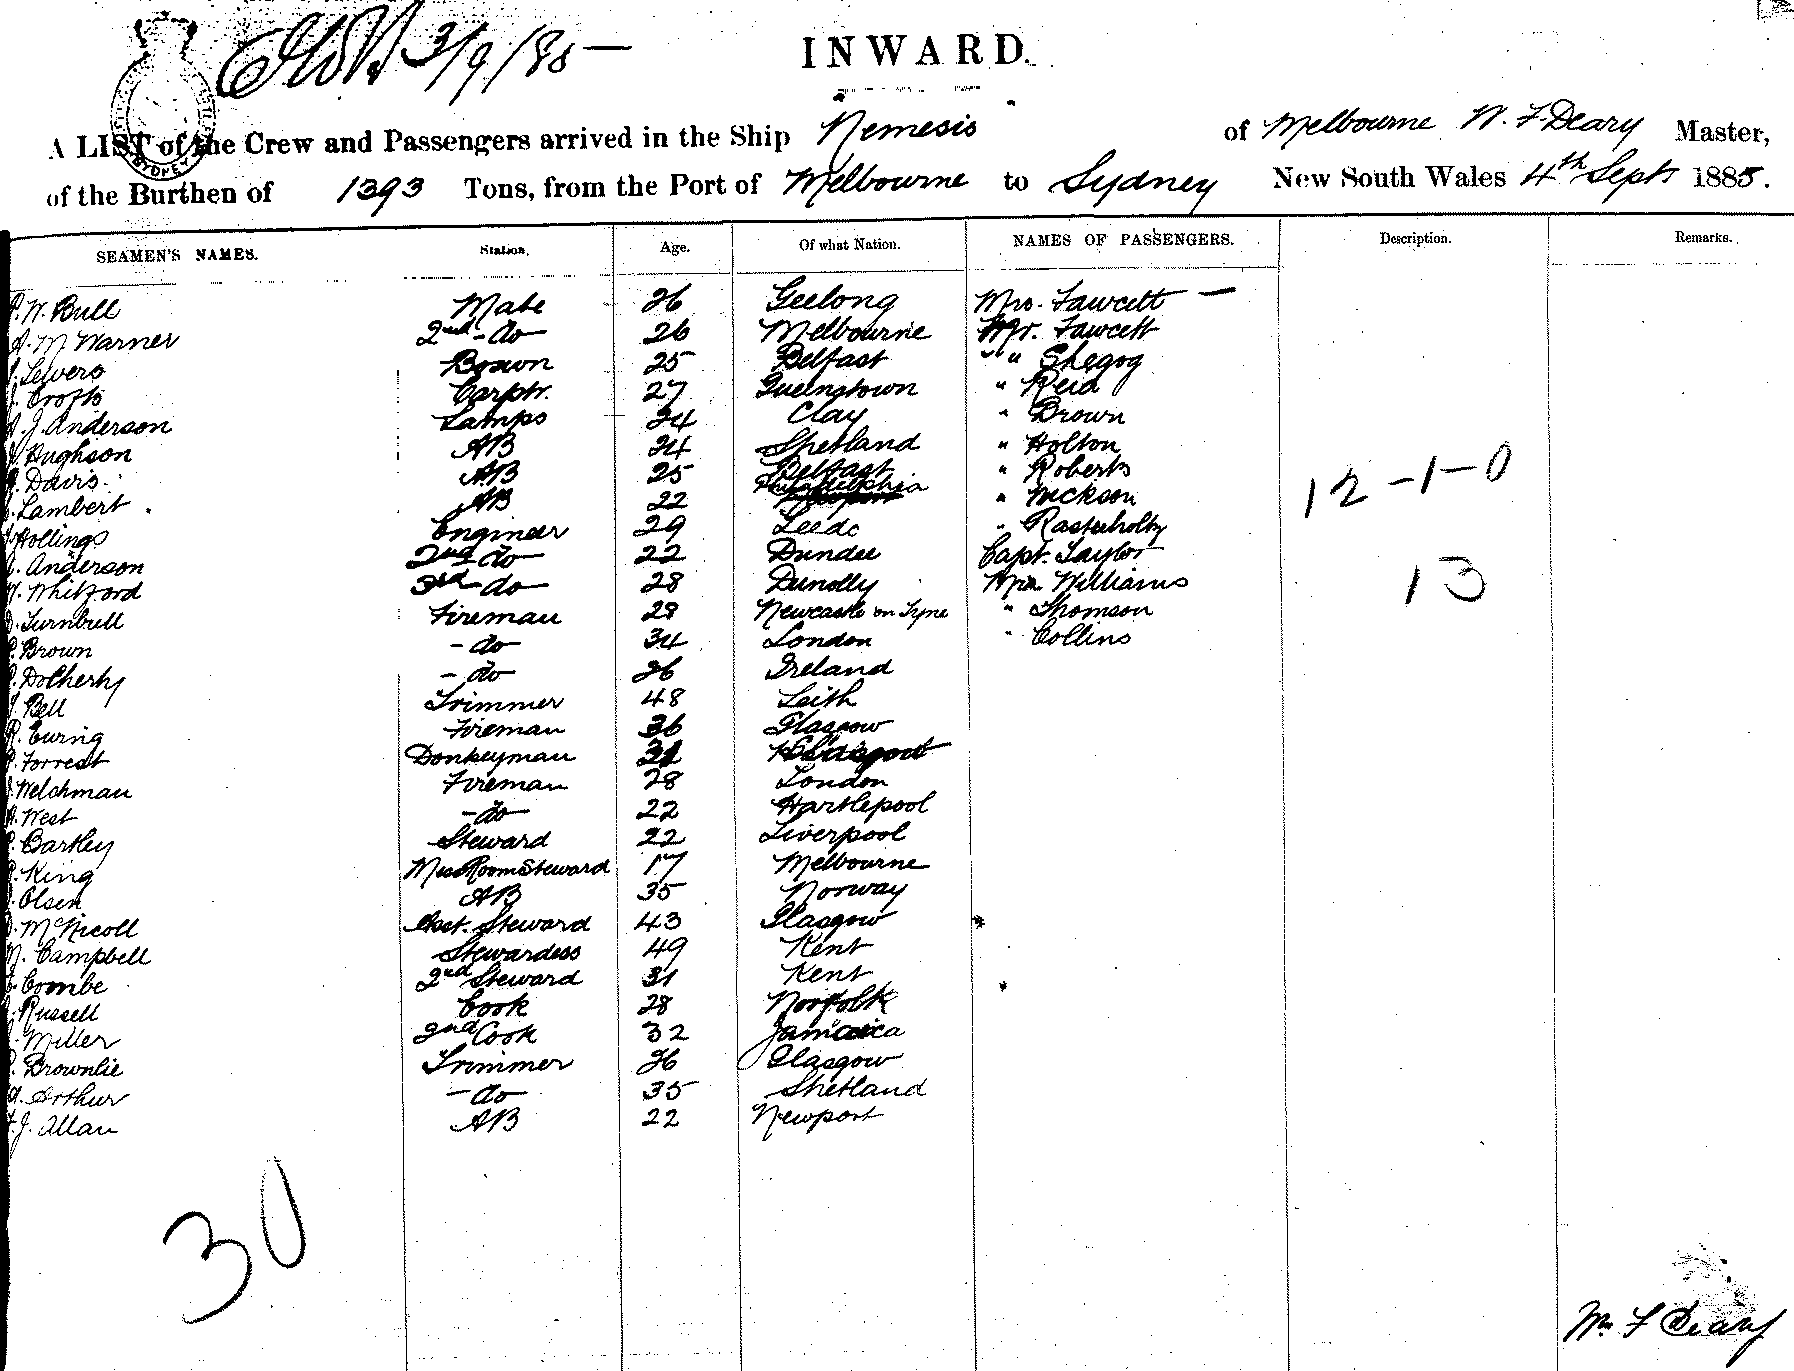 3/9/85
INWARD.
A LIST of the Crew and Passengers arrived in the Ship Nemesis of Melbourne W. F Deary Master,
of the Burthen of 1393 Tons, from the Port of Melbourne to Sydney New South Wales 4th Sept 1885.
SEAMEN'S NAMES. Station. Age. Of what Nation. NAMES OF PASSENGERS. Description. Remarks.
W. Bull Mate 26 Geelong Mrs. Fawcett —
M Warner 2nd - do 26 Melbourne Mr. Fawcett
Sewers Bosun 25 Belfast " " Shegog
Crofts Carptr. 27 Queenstown " Reid
J. Anderson Lamps 24 Clay " Brown
Hughson AB 24 Shetland " Holton
Davis AB 25 Belfast " Roberts
Lambert AB 22 Philadelphia "
12-1-0
Hollings Engineer 29 Leeds "
Anderson 2nd do 22 Dundee Capt. Taylor
Whitford 3rd - do 28 Dunolly Mrs Williams
13
Turnbull Fireman 28 Newcastle on Tyne " Thomson
Brown - do 34 London " Collins
Docherty - do 26 Ireland
Bell Trimmer 48 Leith
R. Ewing Fireman 36 Glasgow
Forrest Donkeyman
Welchman Fireman 28 London
West - do 22 Hartlepool
Bartley Steward 22 Liverpool
King Mess Room Steward 17 Melbourne
Olsen AB 35 Norway
McNicoll Asst. Steward 43 Glasgow
Campbell Stewardess 49 Kent
Combe 2nd Steward 31 Kent
Russell Cook 28 Norfolk
Miller 2nd Cook 32 Jamaica
Brownlie Trimmer 26 Glasgow
Arthur - do 35 Shetland
J. Allan AB 22 Newport
30
Wm F Deary